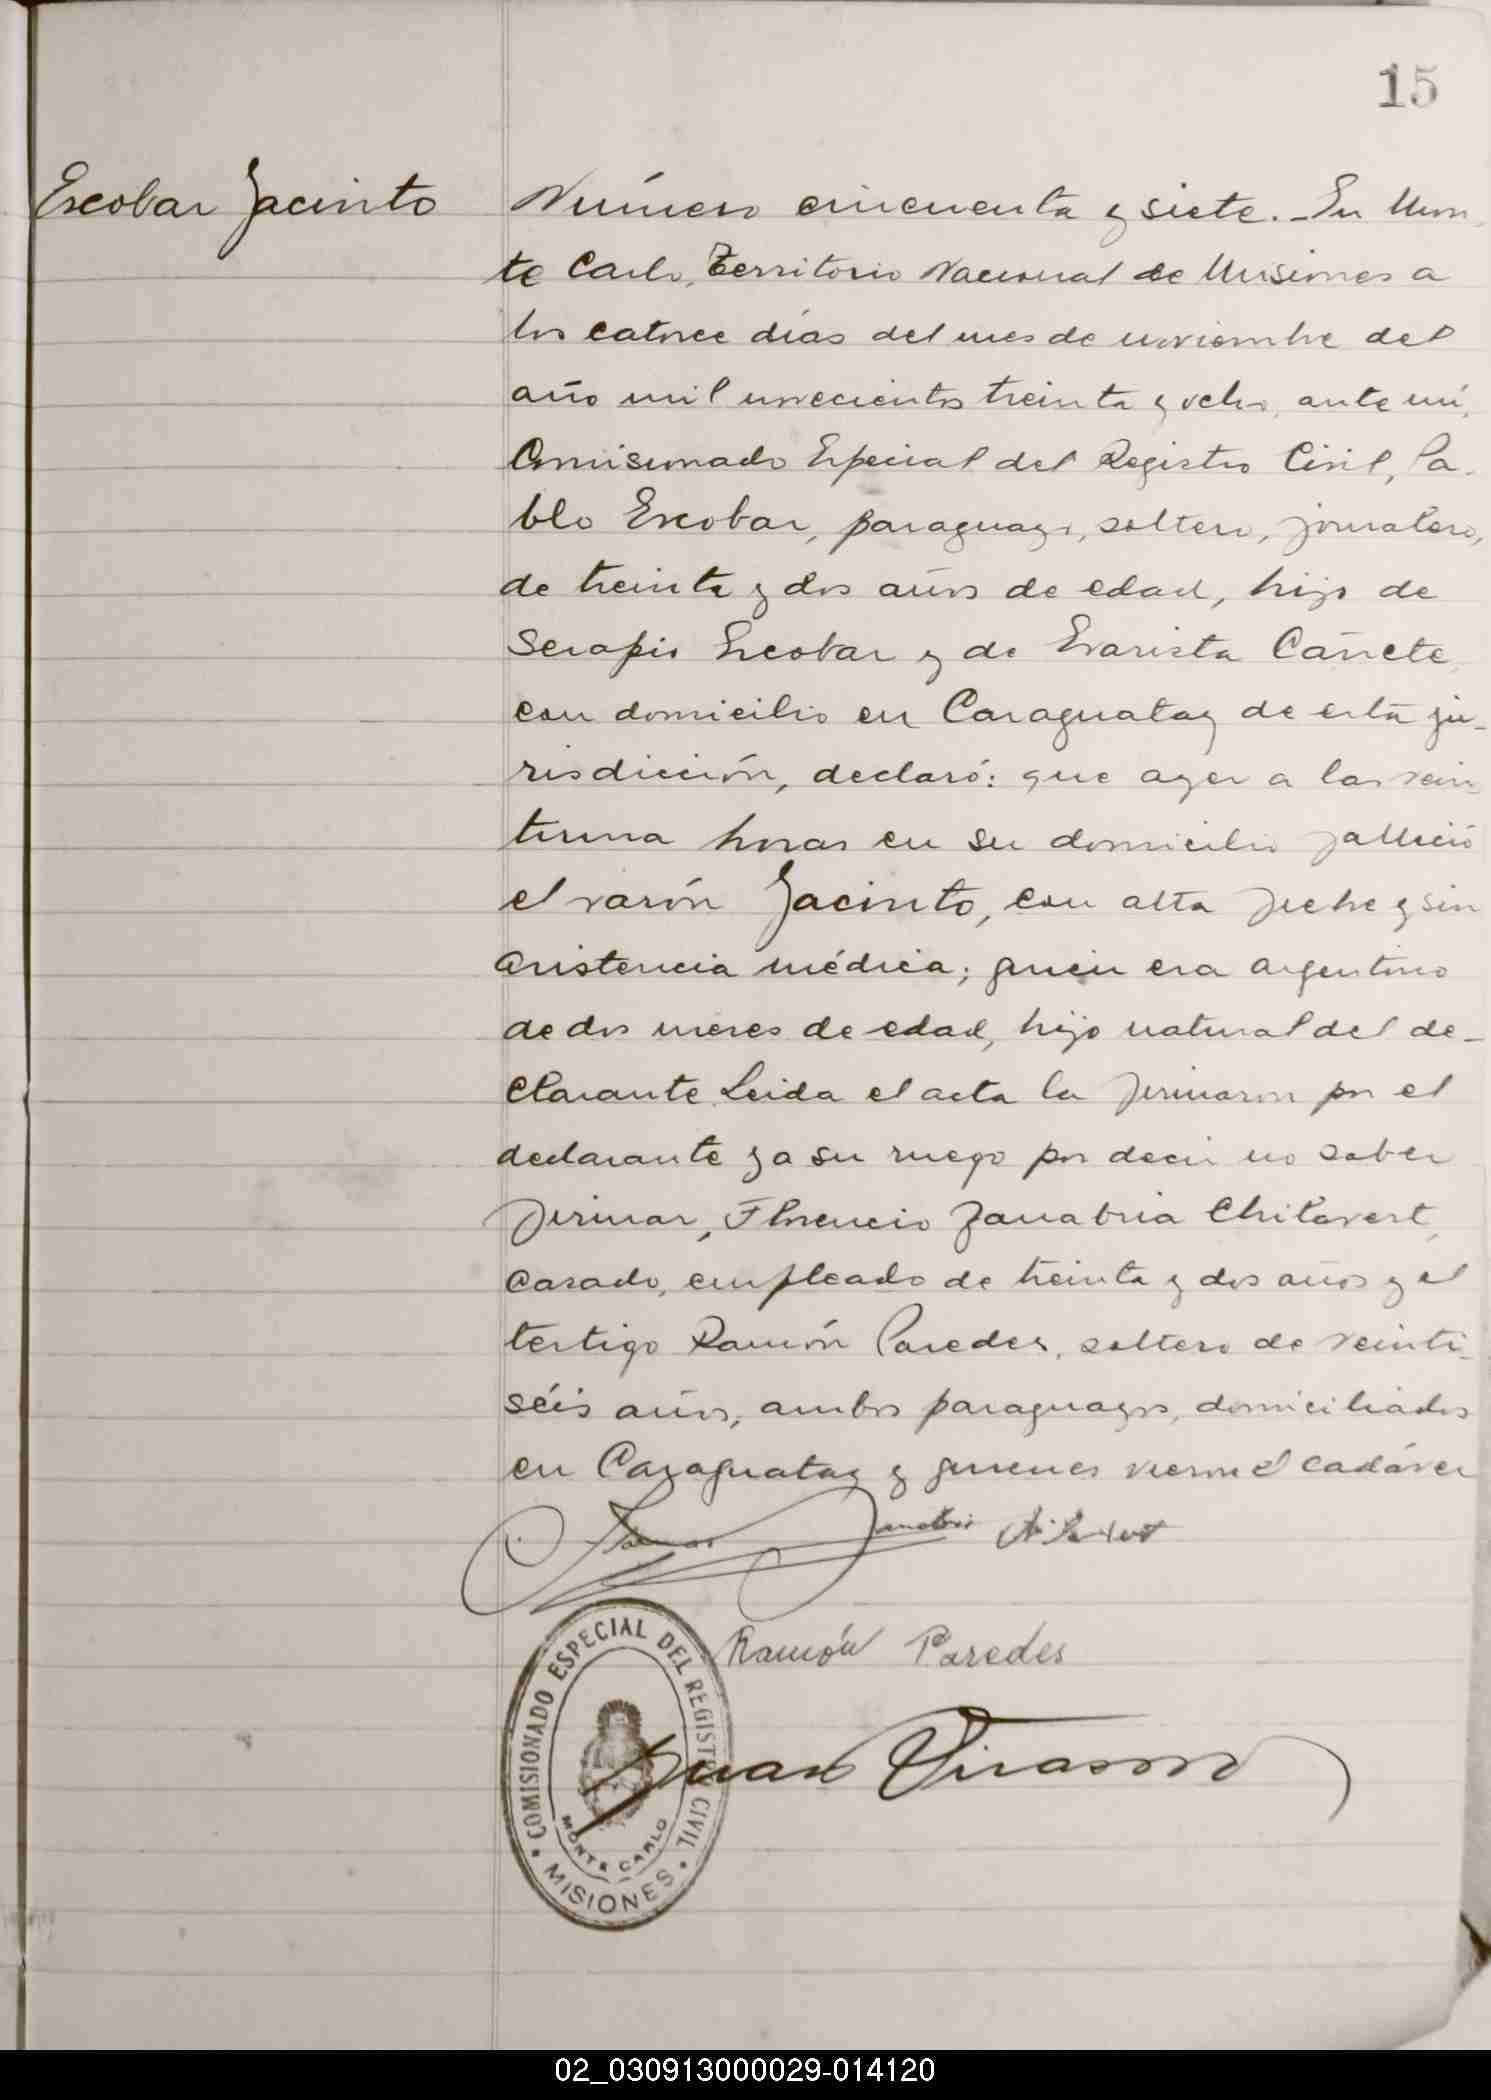 15
Escobar Jacinto
Número cincuenta y siete.- En Mon-
te Carlo, Territorio Nacional de Misiones a
los catorce días del mes de noviembre del
año mil novecientos treinta y ocho, ante mí,
Comisionado Especial del Registro Civil, Pa-
blo Escobar, paraguayo, soltero, jornalero,
de treinta y dos años de edad, hijo de
Serapio Escobar y de Evarista Cañete,
con domicilio en Caraguatay de esta ju-
risdicción, declaró: que ayer a las vein-
tiuna horas en su domicilio falleció
el varón Jacinto, con alta fiebre y sin
asistencia médica; quien era argentino
de dos meses de edad, hijo natural del de-
clarante. Leida el acta la firmaron por el
declarante y a su ruego por decir no saber
firmar, Florencio Zanabria Chilavert,
casado, empleado de treinta y dos años y el
testigo Ramón Paredes, soltero de veinti-
séis años, ambos paraguayos, domiciliados
en Caraguatay y quienes vieron el cadáver
Zanabria Chilavert
Ramón Paredes
COMISIONADO ESPECIAL DEL REGISTRO CIVIL
MONTE CARLO
MISIONES
Juan
02_030913000029-014120